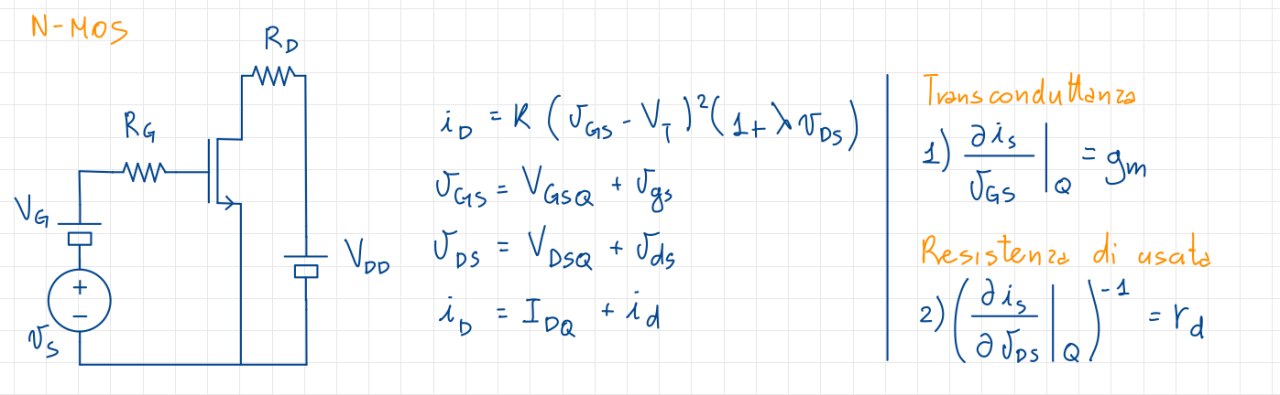 N-MOS
R_D
R_G
V_G
V_DD
+
−
v_s
i_D = K (v_GS - V_T)²(1+ λ v_DS)
v_GS = V_GSQ + v_gs
v_DS = V_DSQ + v_ds
i_D = I_DQ + i_d
Transconduttanza
1) ∂i_s / v_GS |_Q = g_m
Resistenza di usata
2) (∂i_s / ∂v_DS |_Q)^-1 = r_d